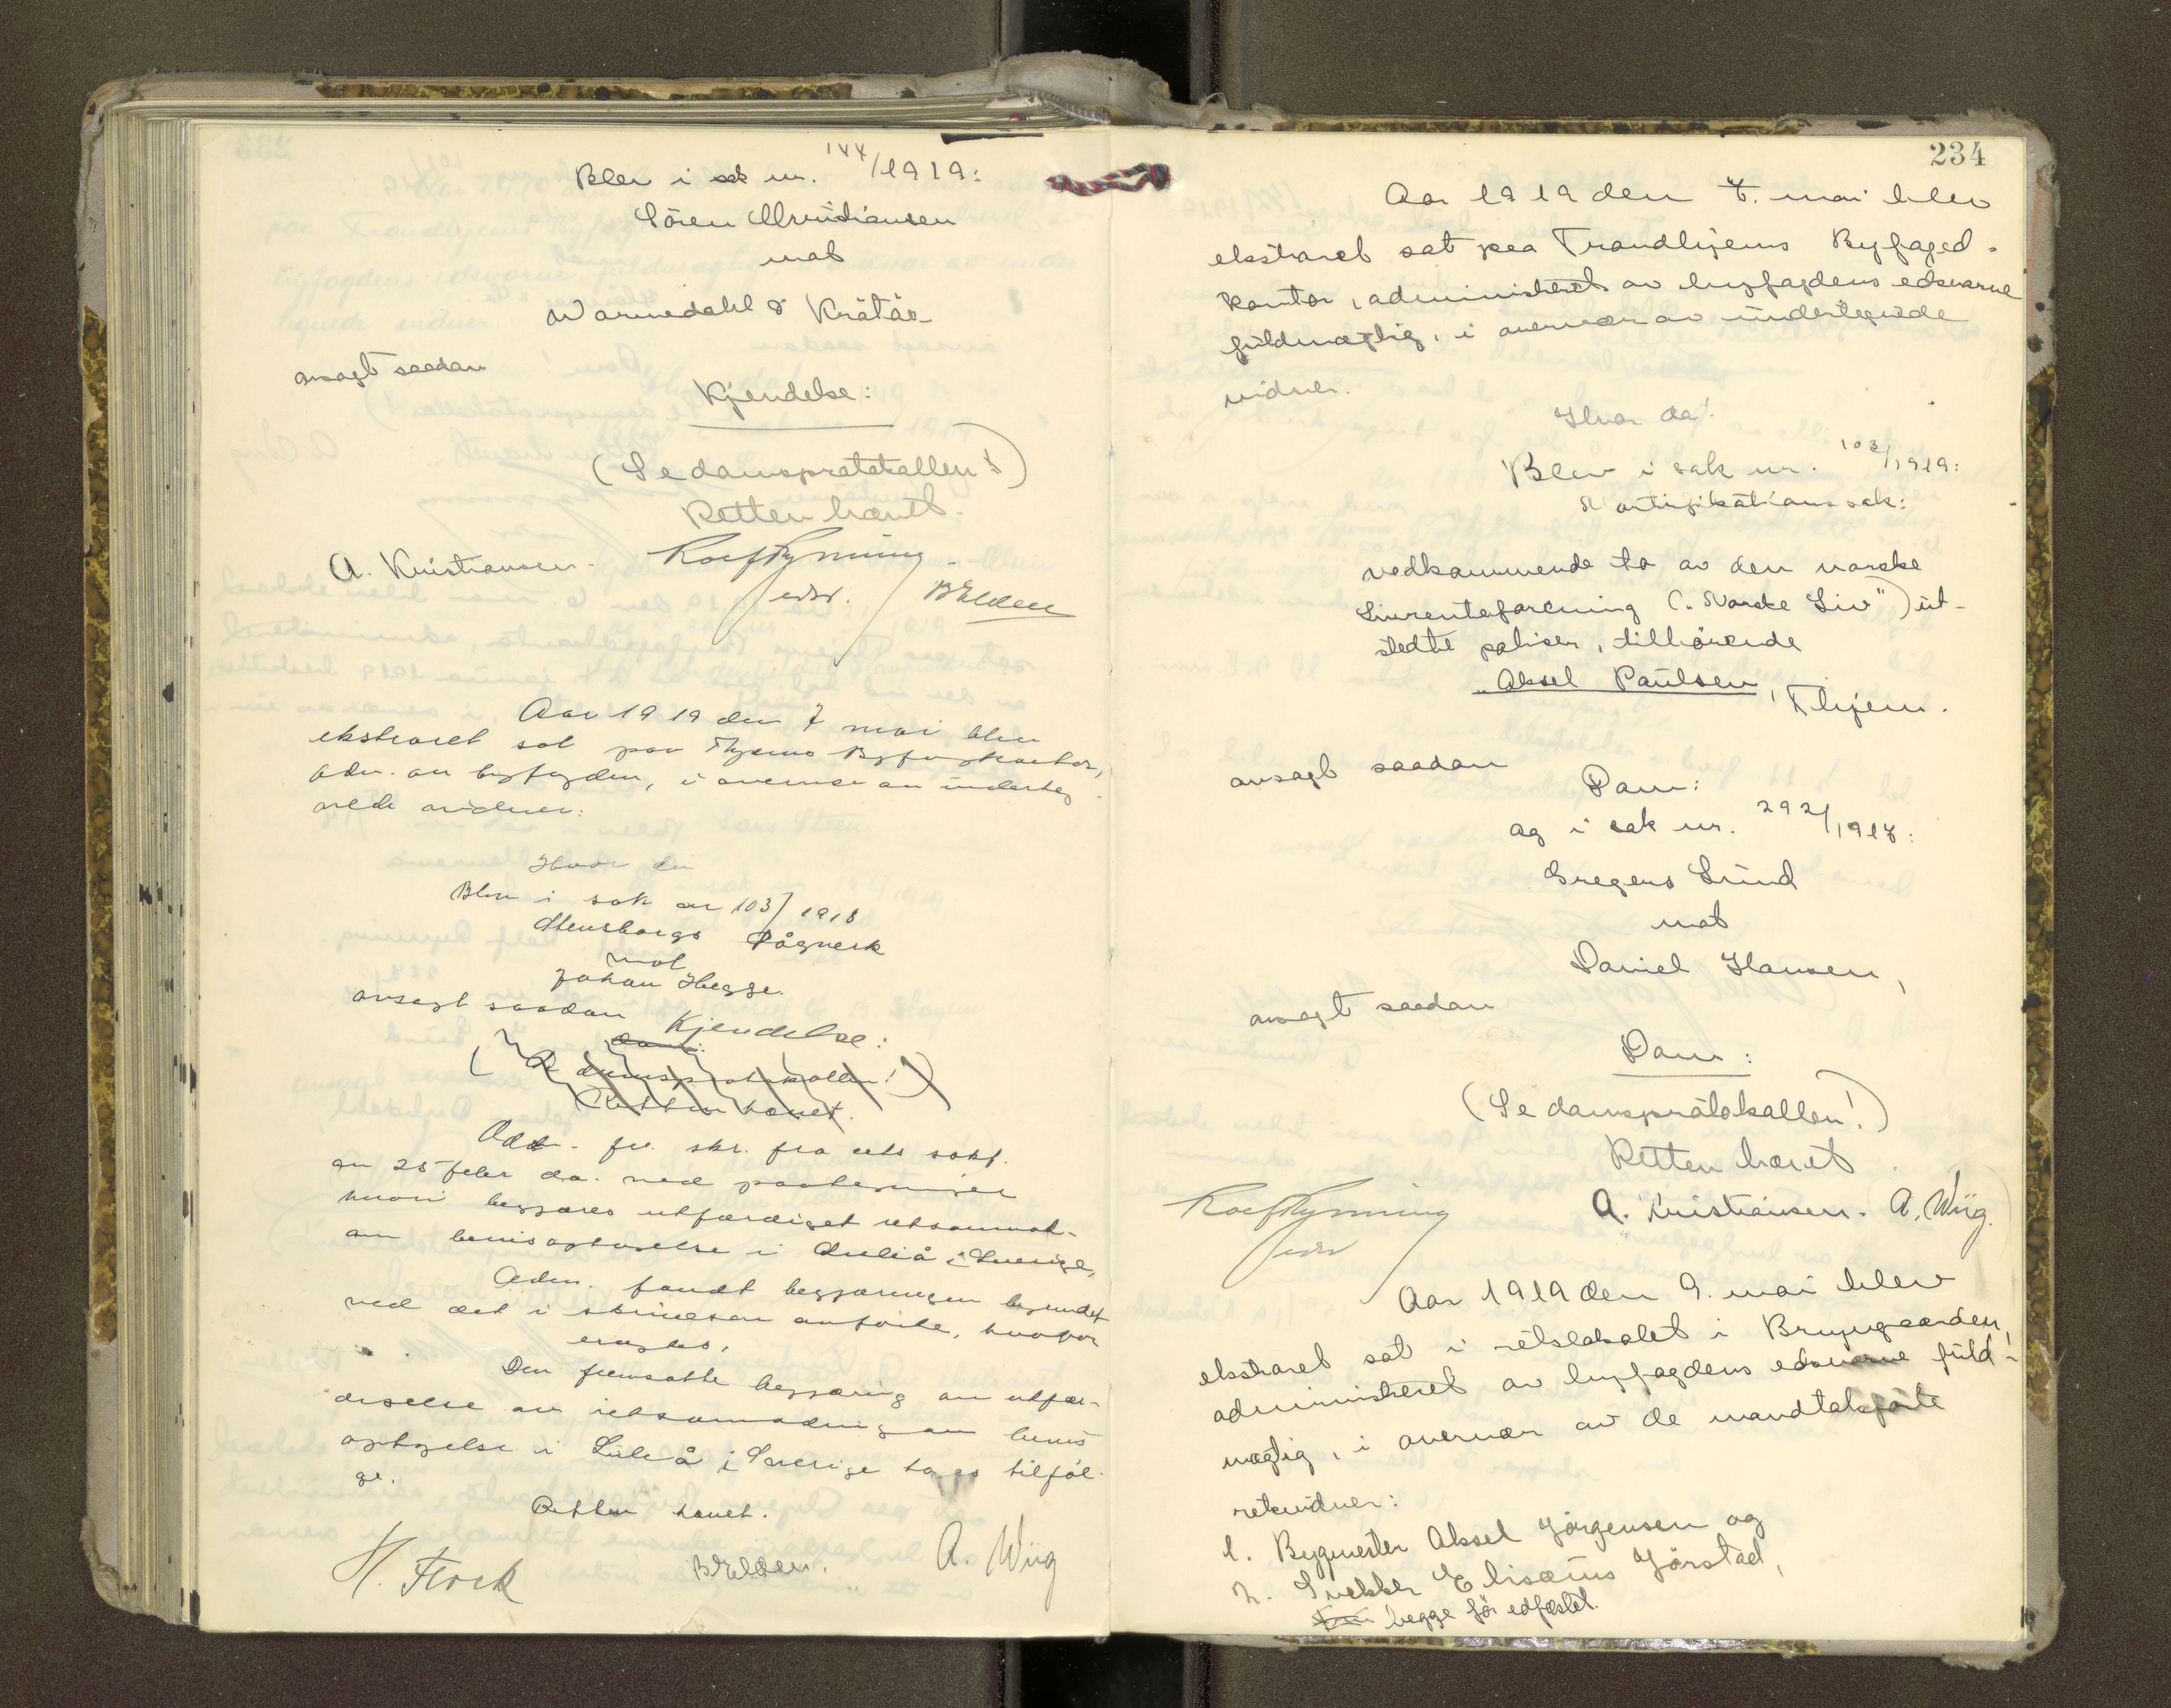 Blev i sak nr. 144/1919:
Sören Christiansen
mot
Warmedahl & Krätär
avsagt saadan
Kjendelse:
(Se domsprotokollen!)
Retten hævet.
A. Kristiansen. Rolf Ryming
edsv. B Elden
Aar 1919 den 7 mai blev
ekstraret sat paa Thjems Byfogkontor,
adm. av byfogden, i overvær av underteg
nede vidner:
Hvor da
Blev i sak nr 103/1918
Stensborgs Sågverk
mot
Johan Hegge.
avsagt saadan Kjendelse:
dom:
(Se domsprotokollen!)
Retten hævet.
Adm. fre. skr. fra sakf.
av 25 febr d.a. med paategninger
hvori begjæres utfærdiget retsanmod-
om bevisoptagelse i Luleå i Sverige,
Adm. fandt begjæringen begrundet
ved det i skrivelsen anförte, hvorfor
eragtes,
Den fremsatte begjæring om utfær-
digelse av retsanmodning om bevis
optagelse i Luleå i Sverige tages tilföl-
ge.
Retten hævet.
H. Flock B Elden. A. Wiig
234
Aar 1919 den 7. mai blev
ekstraret sat paa Trondhjems Byfoged-
kontor, administreret av byfogdens edsvorne
fuldmægtig, i overvær av undertegnede
vidner.
Hvor da!
Blev i sak nr. 103/1919:
Mortifikationssak:
vedkommende to av den norske
Livrenteforening ("Norske Liv") ut-
stedte poliser, tilhörende
Aksel Paulsen, Thjem.
avsagt saadan
Dom:
og i sak nr. 292/1918:
Gregers Lund
mot
Daniel Hansen,
avsagt saadan
Dom:
(Se domsprotokollen!)
Retten hævet
Rolf Ryming A. Kristiansen. A. Wiig.
edsv
Aar 1919 den 9. mai blev
ekstraret sat i retslokalet i Bryngaarden,
administreret av byfogdens edsvorne fuld-
mægtig, i overvær av de mandtalsförte
retsvidner:
1. Bygmester Aksel Jörgensen og
2. Snekker Elisæus Jörstad,
begge för edfæstet.